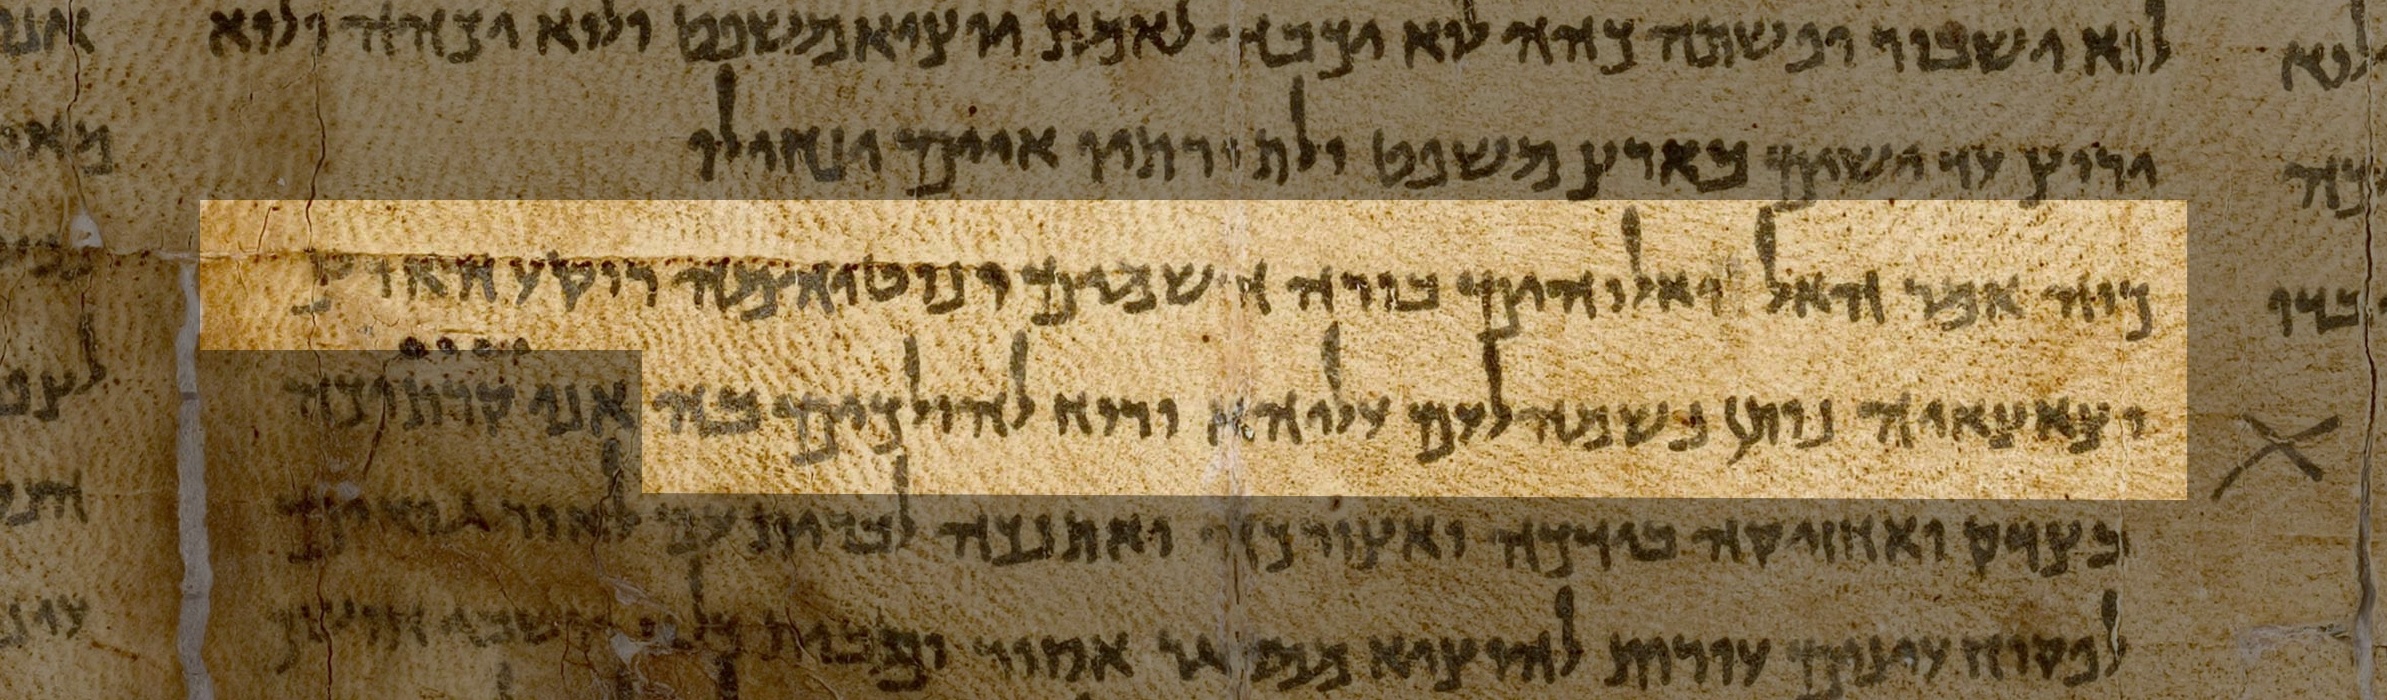 לוא ישבור ופשתה כהה לוא יכבה לאמת יוציא משפט ולוא יכהה ולוא
ירוץ עד ישים בארץ משפט ולתורתיו איים ינחילו
כוה אמר האל ואלוהים בורה השמים ונוטיהמה רוקע הארץ
וצאצאיה נותן נשמה לעם עליהא ורוח להולכים בה אני קרתיכה
בצדק ואחזיקה בידכה ואצורכה ואתנכה לברית עם לאור גואים
לפקוח עינים עורות להוציא ממסגר אסיר ומבית כלא